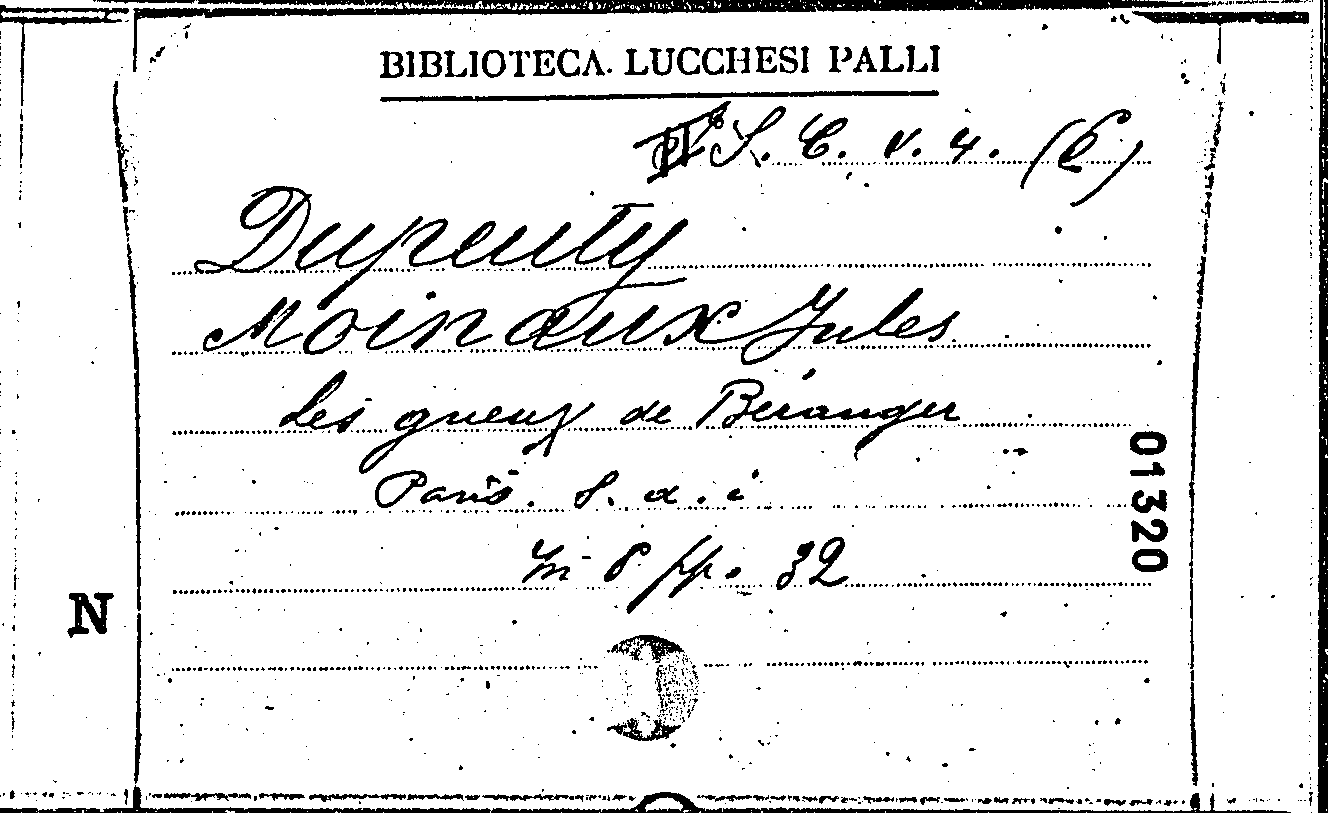 BIBLIOTECA LUCCHESI PALLI
S. C. V. 4. (6)
Dupeuty
Moinaux Jules
Les gueux de Béranger
Paris. S. d. i
In 8 pp. 32
01320
N